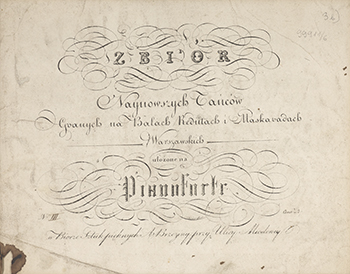 ZBIÓR
Naynowszych Tańców
Granych na Balach Redutach i Maskaradach
Warszawskich
ułożone na
Pianoforte
No III
w Biorze Sztuk pięknych A. Brzeziny przy Ulicy Miodowey